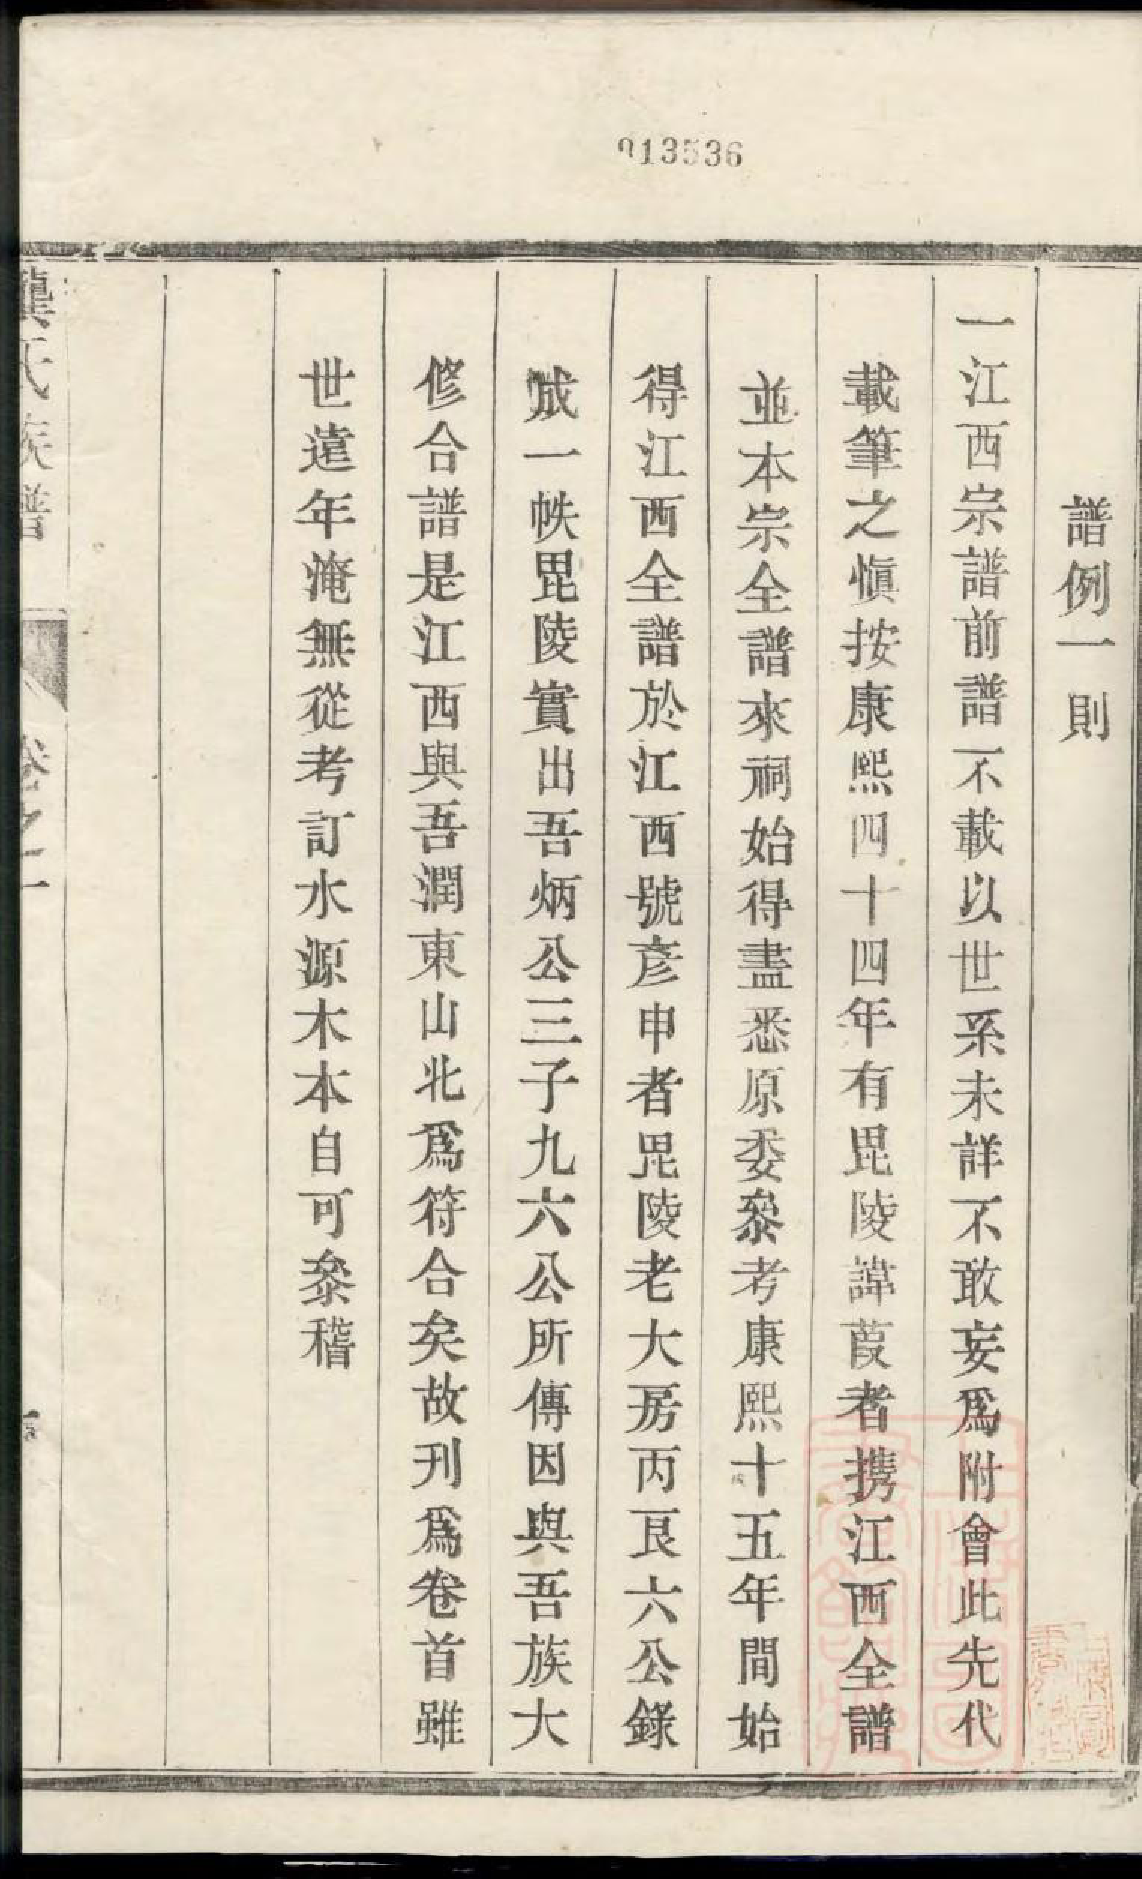 913536
譜例一則
一江西宗譜前譜不載以世系未詳不敢妄爲附會此先代
載筆之愼按康熙四十四年有毘陵諱葭者携江西全譜
並本宗全譜來祠始得盡悉原委叅考康熙十五年間始
得江西全譜於江西號彥申者毘陵老大房丙艮六公錄
成一帙毘陵實出吾炳公三子九六公所傳因與吾族大
修合譜是江西與吾潤東山北爲符合矣故刊爲卷首雖
世遠年淹無從考訂水源木本自可叅稽
龔氏族譜
卷之一